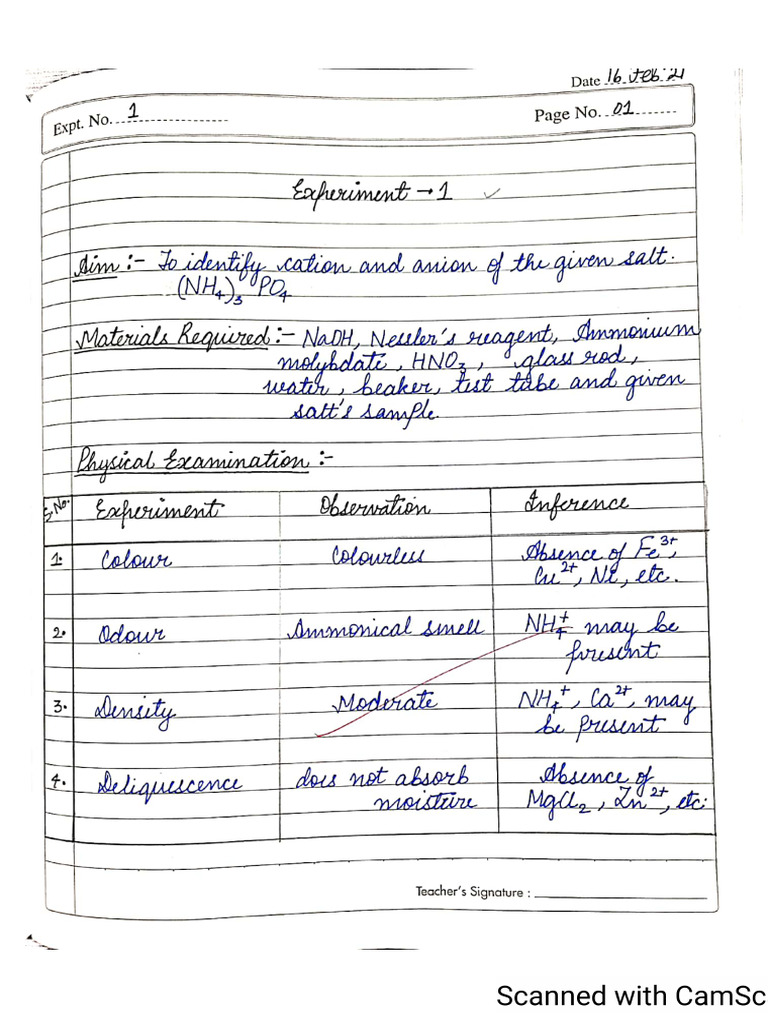 Date 16 Feb 21
Expt. No. 1
Page No. 01
Experiment → 1
Aim :- To identify cation and anion of the given salt.
(NH₄)₃ PO₄
Materials Required :- NaOH, Nessler's reagent, Ammonium
molybdate, HNO₃, glass rod,
water, beaker, test tube and given
salt's sample.
Physical Examination :-
S.No. Experiment Observation Inference
1. Colour Colourless Absence of Fe³⁺,
Cu²⁺, Ni, etc.
2. Odour Ammonical smell NH₄⁺ may be
present
3. Density Moderate NH₄⁺, Ca²⁺, may
be present
4. Deliquescence does not absorb Absence of
moisture MgCl₂, Zn²⁺, etc.
Teacher's Signature :
Scanned with CamSc